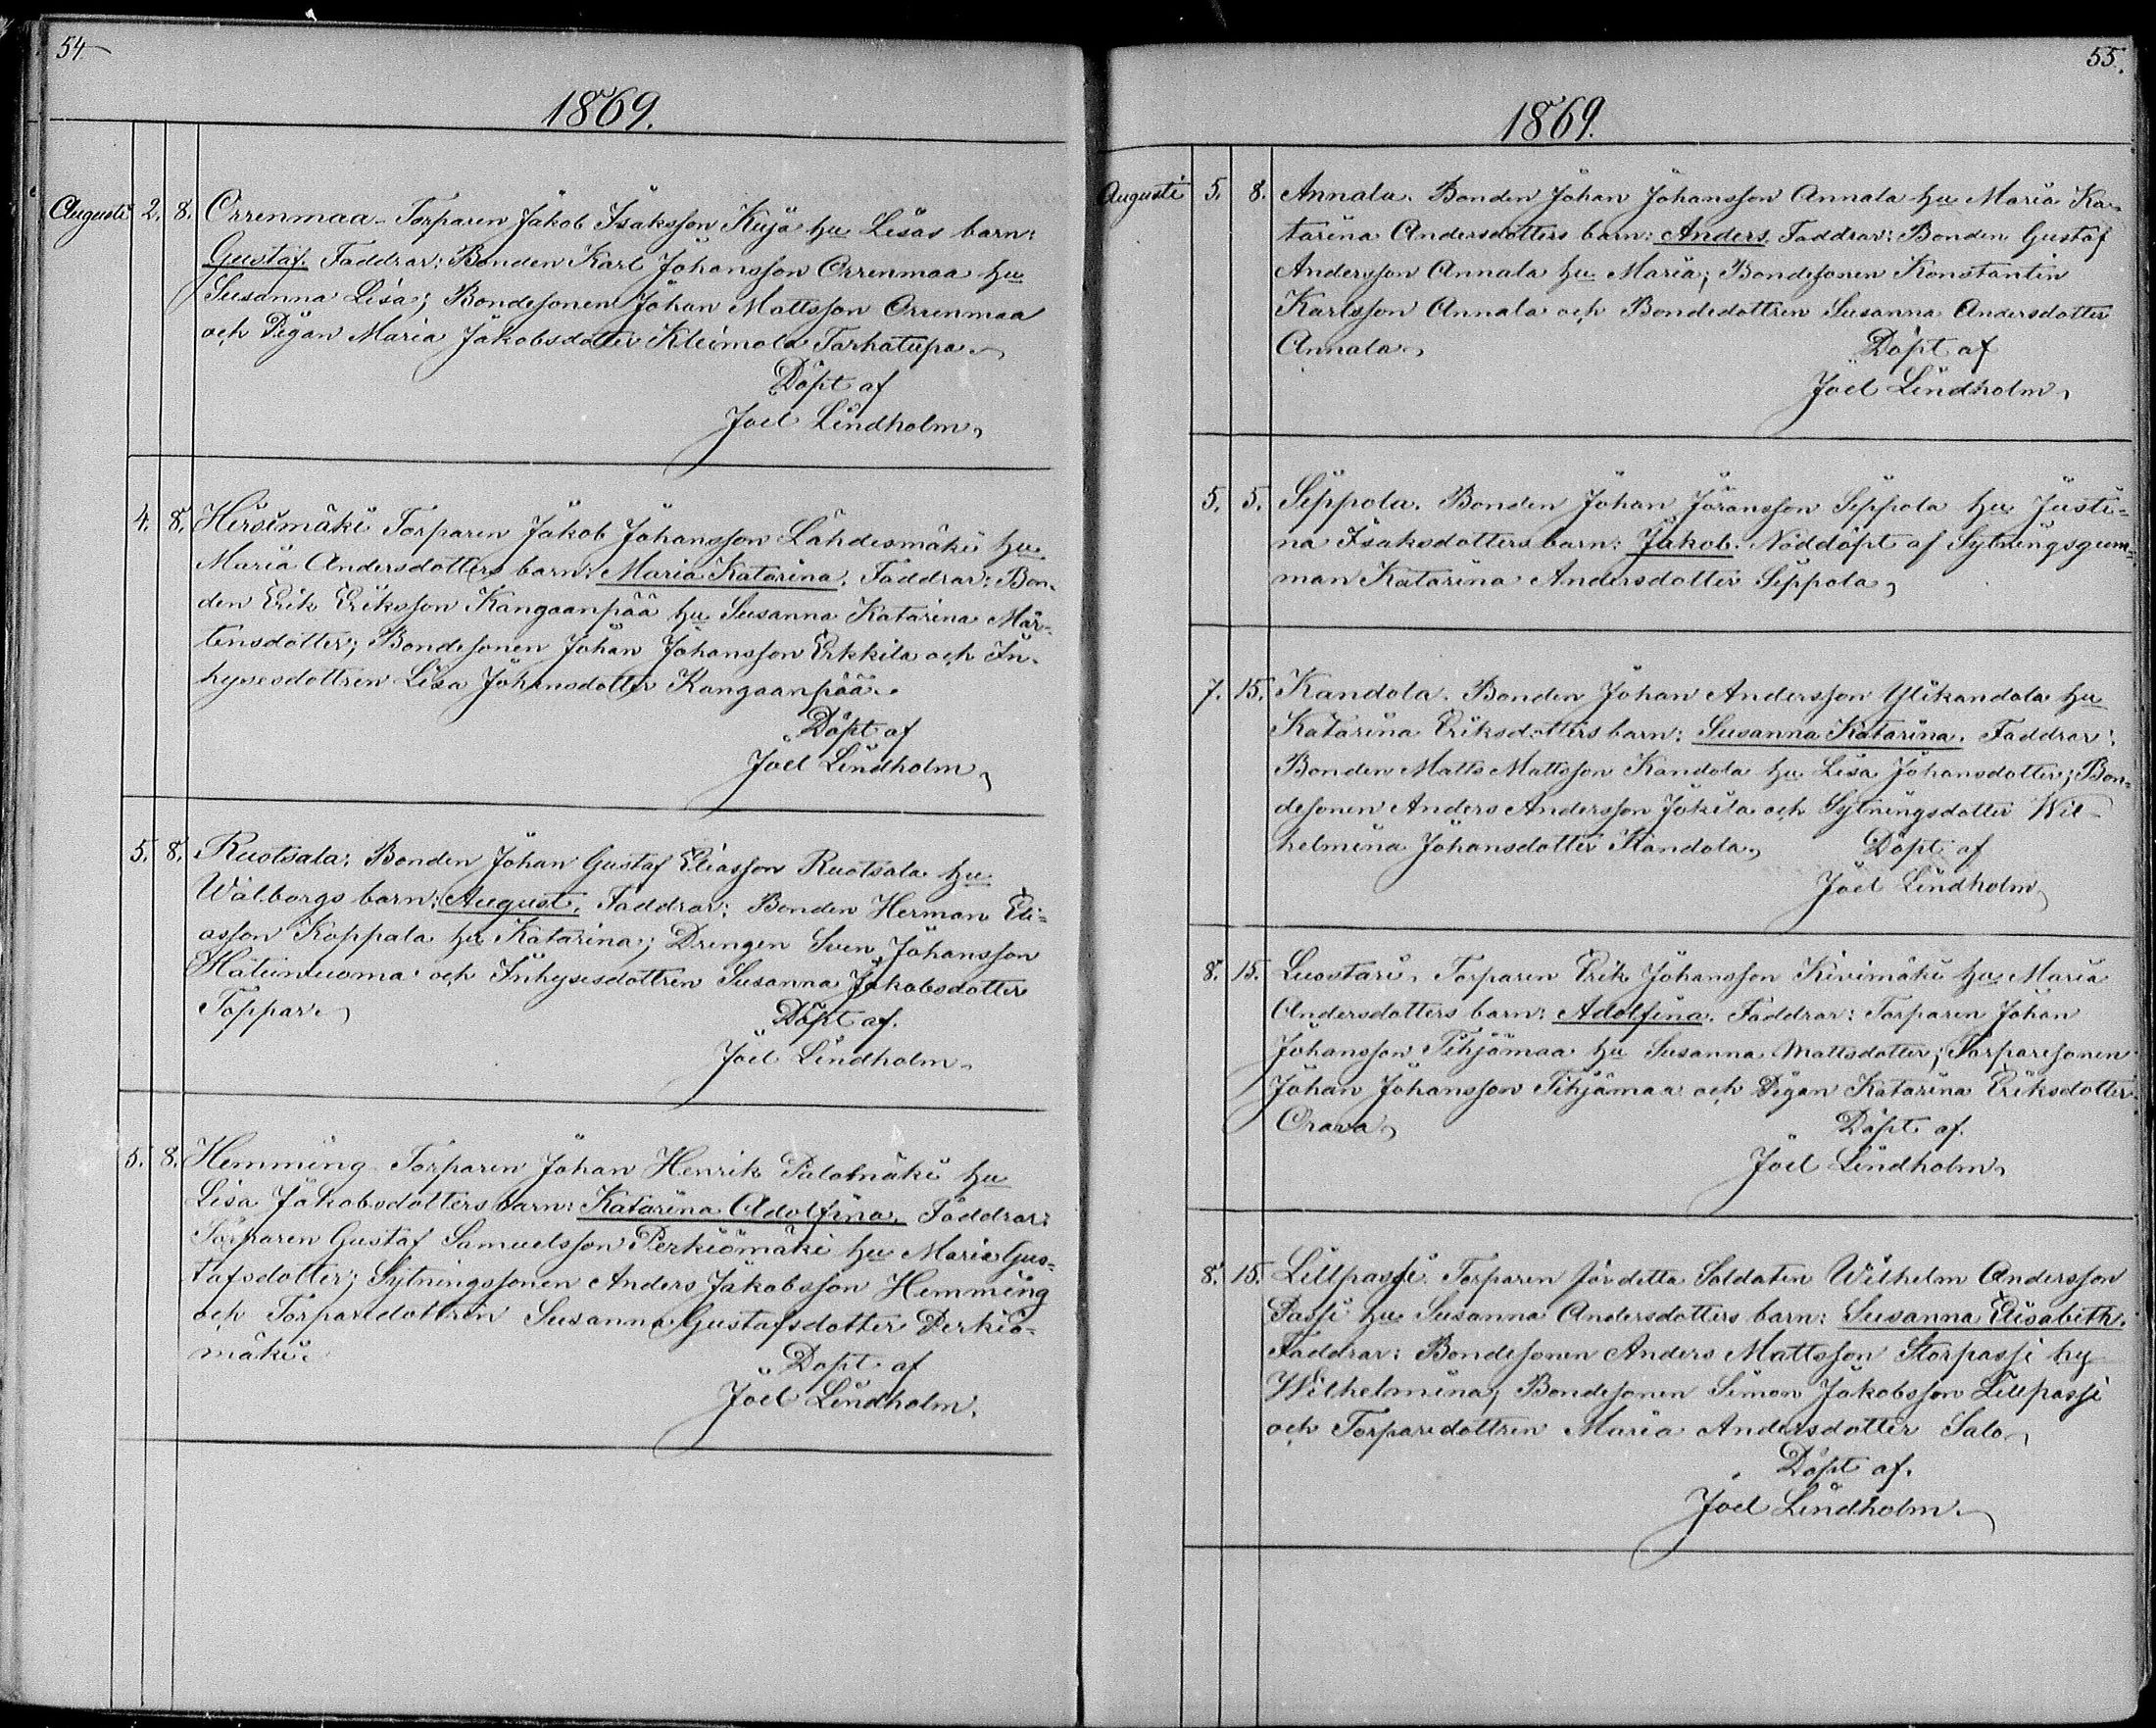 54
1869.
Augusti 2. 8. Orrenmaa. Torparen Jakob Isaksson Kujä hu Lisas barn:
Gustaf. Faddrar: Bonden Karl Johansson Orrenmaa hu
Susanna Lisa; Bondesonen Johan Mattsson Orrenmaa
och Pigan Maria Jakobsdotter Kleimola Tarhatupa.
Döpt af
Joel Lindholm.
4. 8. Hirsimäki Torparen Jakob Johansson Lähdesmäki hu
Maria Andersdotters barn: Maria Katarina. Faddrar: Bon-
den Erik Eriksson Kangaanpää hu Susanna Katarina Mår-
tensdotter; Bondesonen Johan Johansson Erkkila och In-
hysesdottren Lisa Johansdotter Kangaanpää.
Döpt af
Joel Lindholm
5. 8. Ruotsala. Bonden Johan Gustaf Eliasson Ruotsala hu
Walborgs barn: August. Faddrar: Bonden Herman Eli-
asson Koppala hu Katarina; Drengen Sven Johansson
Haturituoma och Inhysesdottren Susanna Jakobsdotter
Toppari
Döpt af.
Joel Lindholm.
5. 8. Hemming Torparen Johan Henrik Palomäki hu
Lisa Jakobsdotters barn: Katarina Adolfina. Faddrar:
Torparen Gustaf Samuelsson Perkiömäki hu Maria Gus-
tafsdotter; Sytningssonen Anders Jakobsson Hemming
och Torparedottren Susanna Gustafsdotter Perkiö-
mäki.
Döpt af
Joel Lindholm.
55.
1869.
Augusti 5. 8. Annala. Bonden Johan Johansson Annala hu Maria Ka-
tarina Andersdotters barn: Anders. Faddrar: Bonden Gustaf
Andersson Annala hu Maria; Bondesonen Konstantin
Karlsson Annala och Bondedottren Susanna Andersdotter
Annala.
Döpt af
Joel Lindholm.
5. 5. Seppola. Bonden Johan Jöransson Seppola hu Justi-
na Isaksdotters barn: Jakob. Nöddöpt af Sytningsgum-
man Katarina Andersdotter Seppola,
7. 15. Kandola. Bonden Johan Andersson Ylikandola hu
Katarina Eriksdotters barn: Susanna Katarina. Faddrar:
Bonden Matts Mattsson Kandola hu Lisa Johansdotter; Bon-
desonen Anders Andersson Jokila och Sytningsdotter Wil-
helmina Johansdotter Kandola. Döpt af
Joel Lindholm
8. 15. Luostari. Torparen Erik Johansson Kivimäki hu Maria
Andersdotters barn: Adolfina. Faddrar: Torparen Johan
Johansson Pihjämaa hu Susanna Mattsdotter; Torparesonen
Johan Johansson Pihjämaa och Pigan Katarina Eriksdotter
Orava.
Döpt af.
Joel Lindholm
8. 15. Lillpassi. Torparen fördetta Soldaten Wilhelm Andersson
Passi hu Susanna Andersdotters barn: Susanna Elisabeth.
Faddrar: Bondesonen Anders Mattsson Storpassi hu
Wilhelmina; Bondesonen Simon Jakobsson Lillpassi
och Torparedottren Maria Andersdotter Salo
Döpt af.
Joel Lindholm.